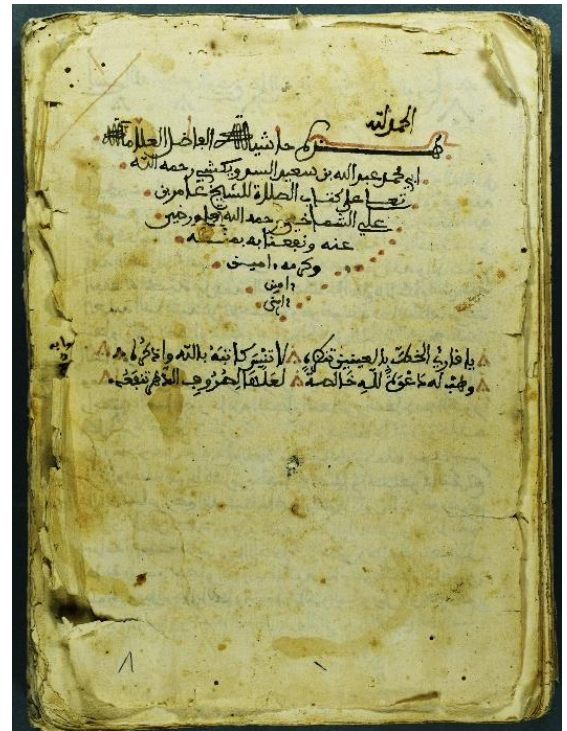 الحمد لله
هذه حاشية الفاضل العلامة
ابي محمد عبد الله بن سعيد السدويكشي رحمه الله
تعا على كتاب الصلاة للشيخ عامر بن
علي الشماخي رحمه الله ورضي
عنه ونفعنا به بمنه
وكرمه امين
امين
امين
يا قارئ الخط بالعينين تنظره لا تنس كاتبه بالله واذكره
وهب له دعوة لله خالصة لعلها لصروف الدهر تنفعه